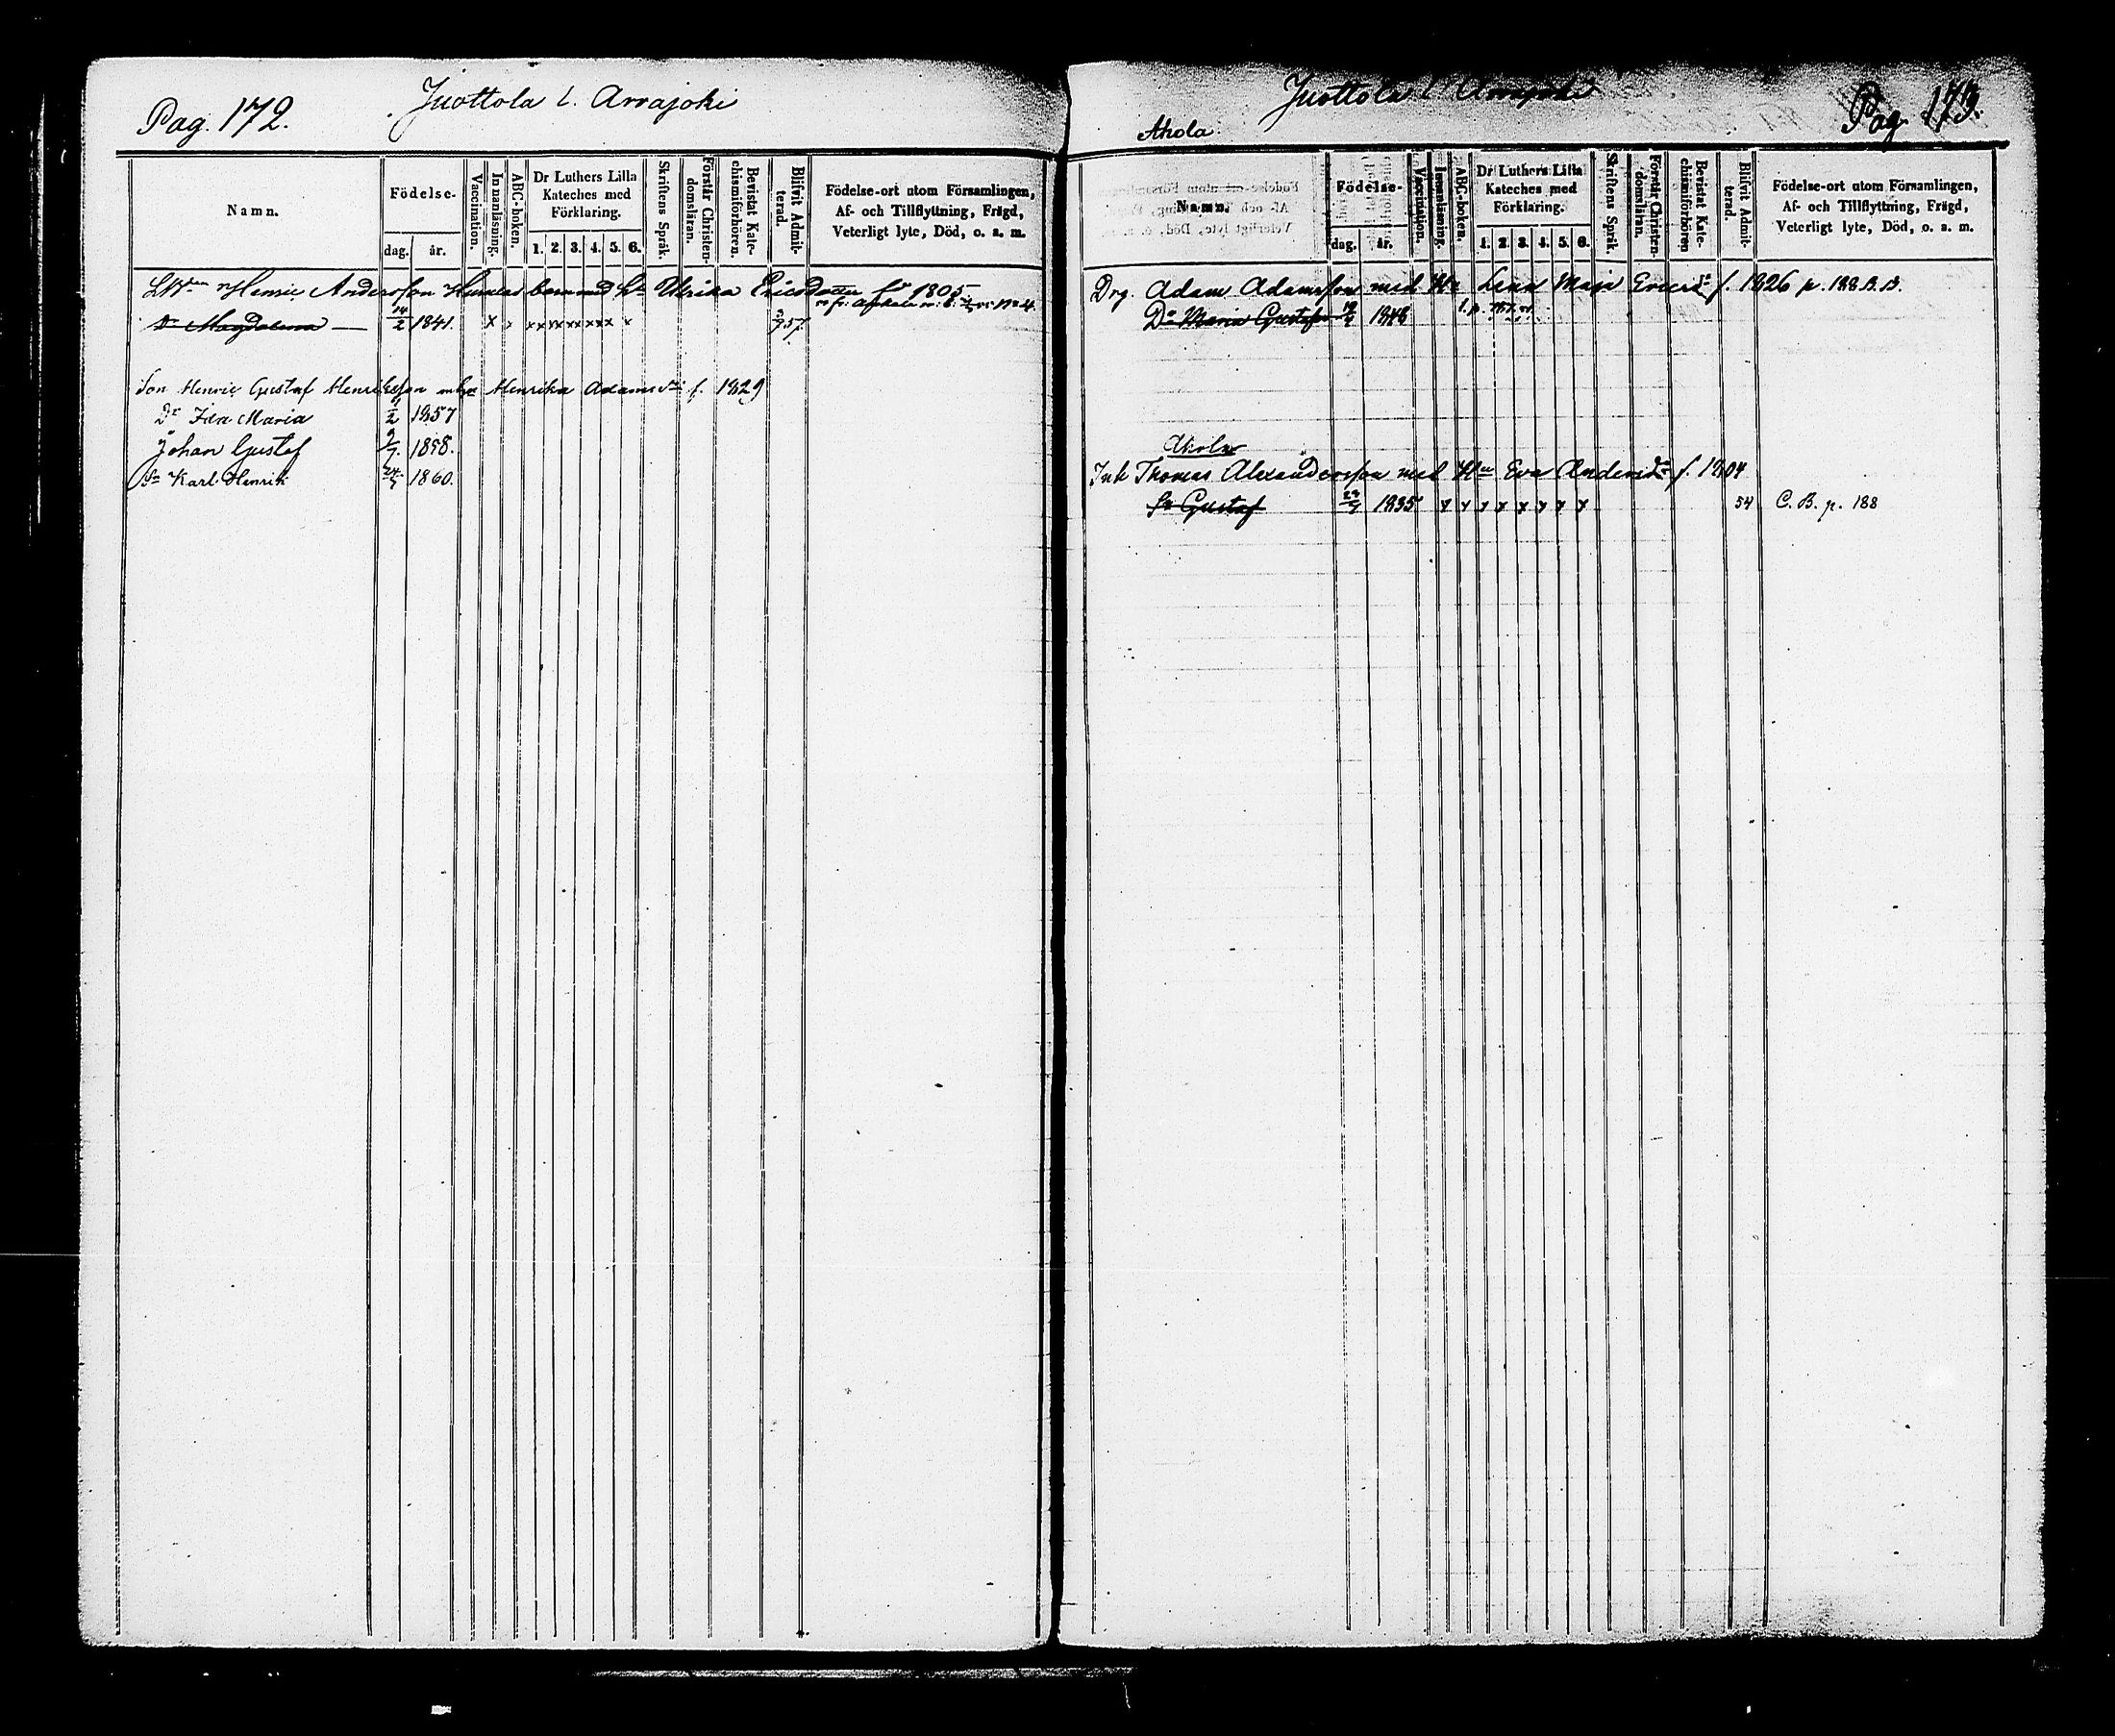 Pag. 172.
Juottola l. Arrajoki
Namn.
Födelse-
dag. år.
Vaccination.
Innanläsning.
ABC-boken.
Dr Luthers Lilla
Kateches med
Förklaring.
1. 2. 3. 4. 5. 6.
Skriftens Språk.
Förstår Christen-
domsläran.
Bevistat Kate-
chismiförhören.
Blifvit Admit-
terad.
Födelse-ort utom Församlingen,
Af- och Tillflyttning, Frägd,
Veterligt lyte, Död, o. s. m.
Henric Andersson med Ulrika Ericsdotter 1805
Dr Magdalena 14/2 1841. x x x x x x x x 57.
Son Henric Gustaf Henriksson Henrika Adamsdr f. 1829
Dr Ida Maria 1/2 1857
Johan Gustaf 9/7. 1858.
Sn Karl Henrik 1860.
Juottola l. Arrajoki
Pag. 173.
Ahola
Namn.
Födelse-
dag. år.
Vaccination.
Innanläsning.
ABC-boken.
Dr Luthers Lilla
Kateches med
Förklaring.
1. 2. 3. 4. 5. 6.
Skriftens Språk.
Förstår Christen-
domsläran.
Bevistat Kate-
chismiförhören
Blifvit Admit-
terad.
Födelse-ort utom Församlingen,
Af- och Tillflyttning, Frägd,
Veterligt lyte, Död, o. s. m.
Drg. Adam Adamsson med Lena Maja f. 1826 p. 188 B.B.
Dr Maria Gustafva 1848
Ahola
Thomas Alexandersson med Hu Eva Andersdr f. 1804
Sn Gustaf 1835 x x x x x x x x 54 C. B. p. 188